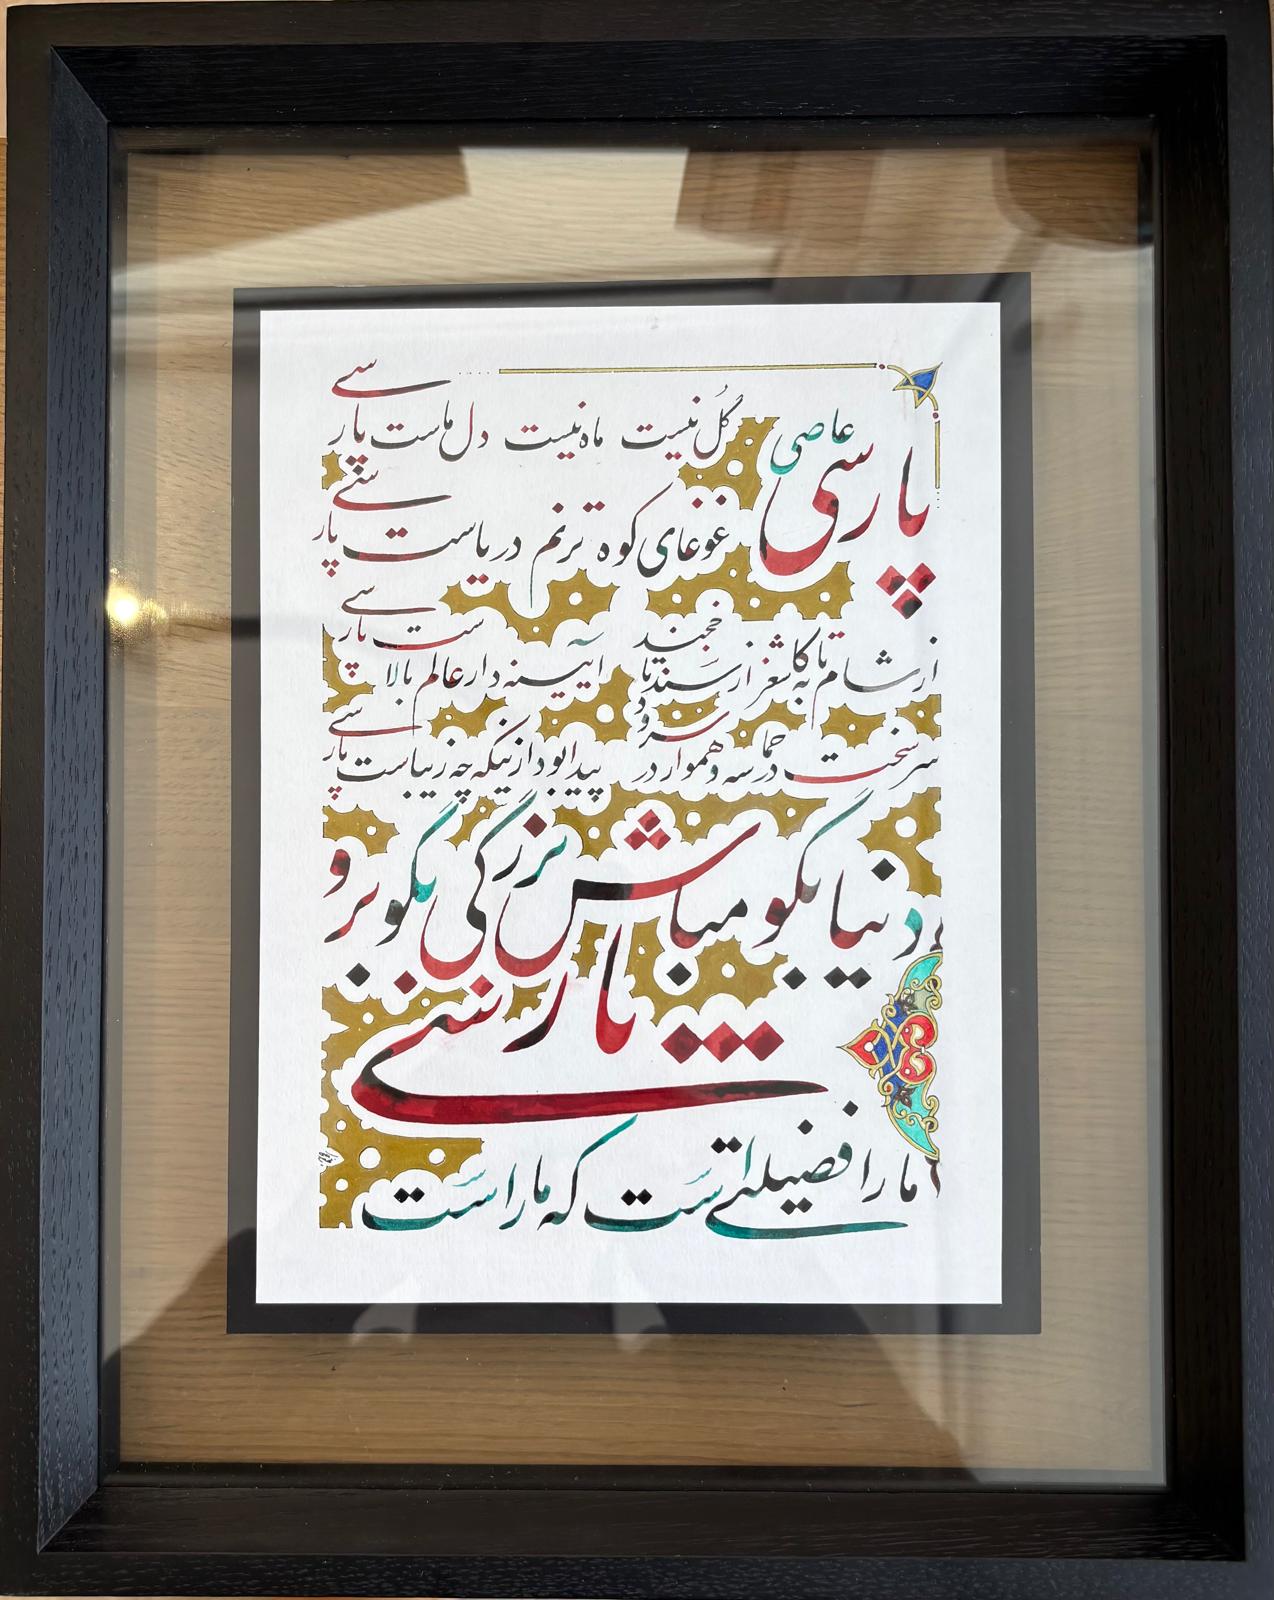 پارسی
عاصی
گُل نیست ماه نیست دل ماست پارسی
غوغای کوه ترنم دریاست پارسی
از شام تا به کاشغر از سند تا خجند
آیینه‌دار عالم بالاست پارسی
سرسخت در حماسه و هموار در سرود
پیدا بود از اینکه چه زیباست پارسی
دنیا بگو مباش بزرگی بگو برو
پارسی
ما را فضیلتی‌ست که ما راست